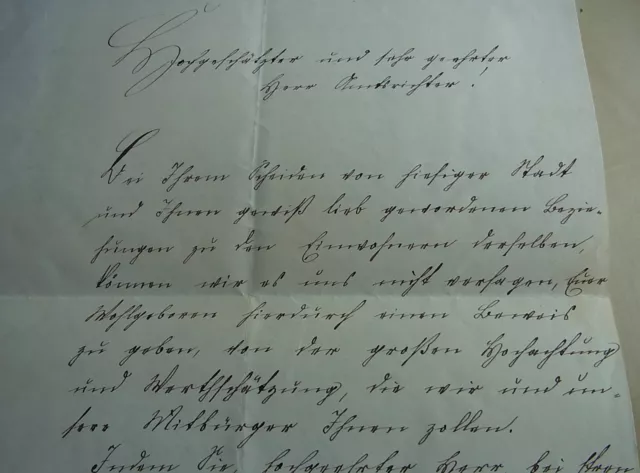 Hochgeschätzter und sehr geehrter
Herr Amtsrichter.
Bei Ihrem Scheiden von hiesiger Stadt
und Ihnen gewiß lieb gewordenen Bezie-
hungen zu den Einwohnern derselben,
können wir es uns nicht versagen, Euer
Wohlgeboren hierdurch einen Beweis
zu geben, von der großen Hochachtung
und Werthschätzung, die wir und un-
sere Mitbürger Ihnen zollen.
Indem Sie, hochgeehrter Herr bei